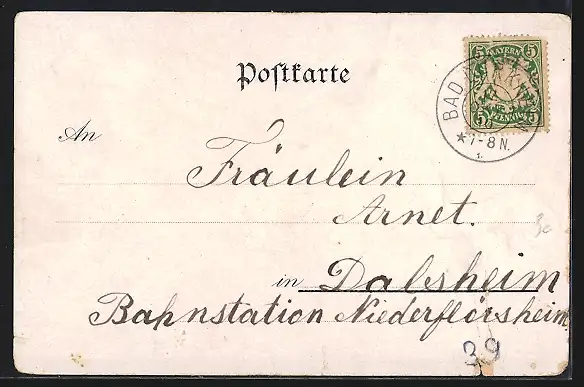 Postkarte
5 BAYERN 5
5 PFENNIG 5
BAD
* 7-8 N.
An
Fräulein
Arnet.
in Dalsheim
Bahnstation Niederflörsheim
39